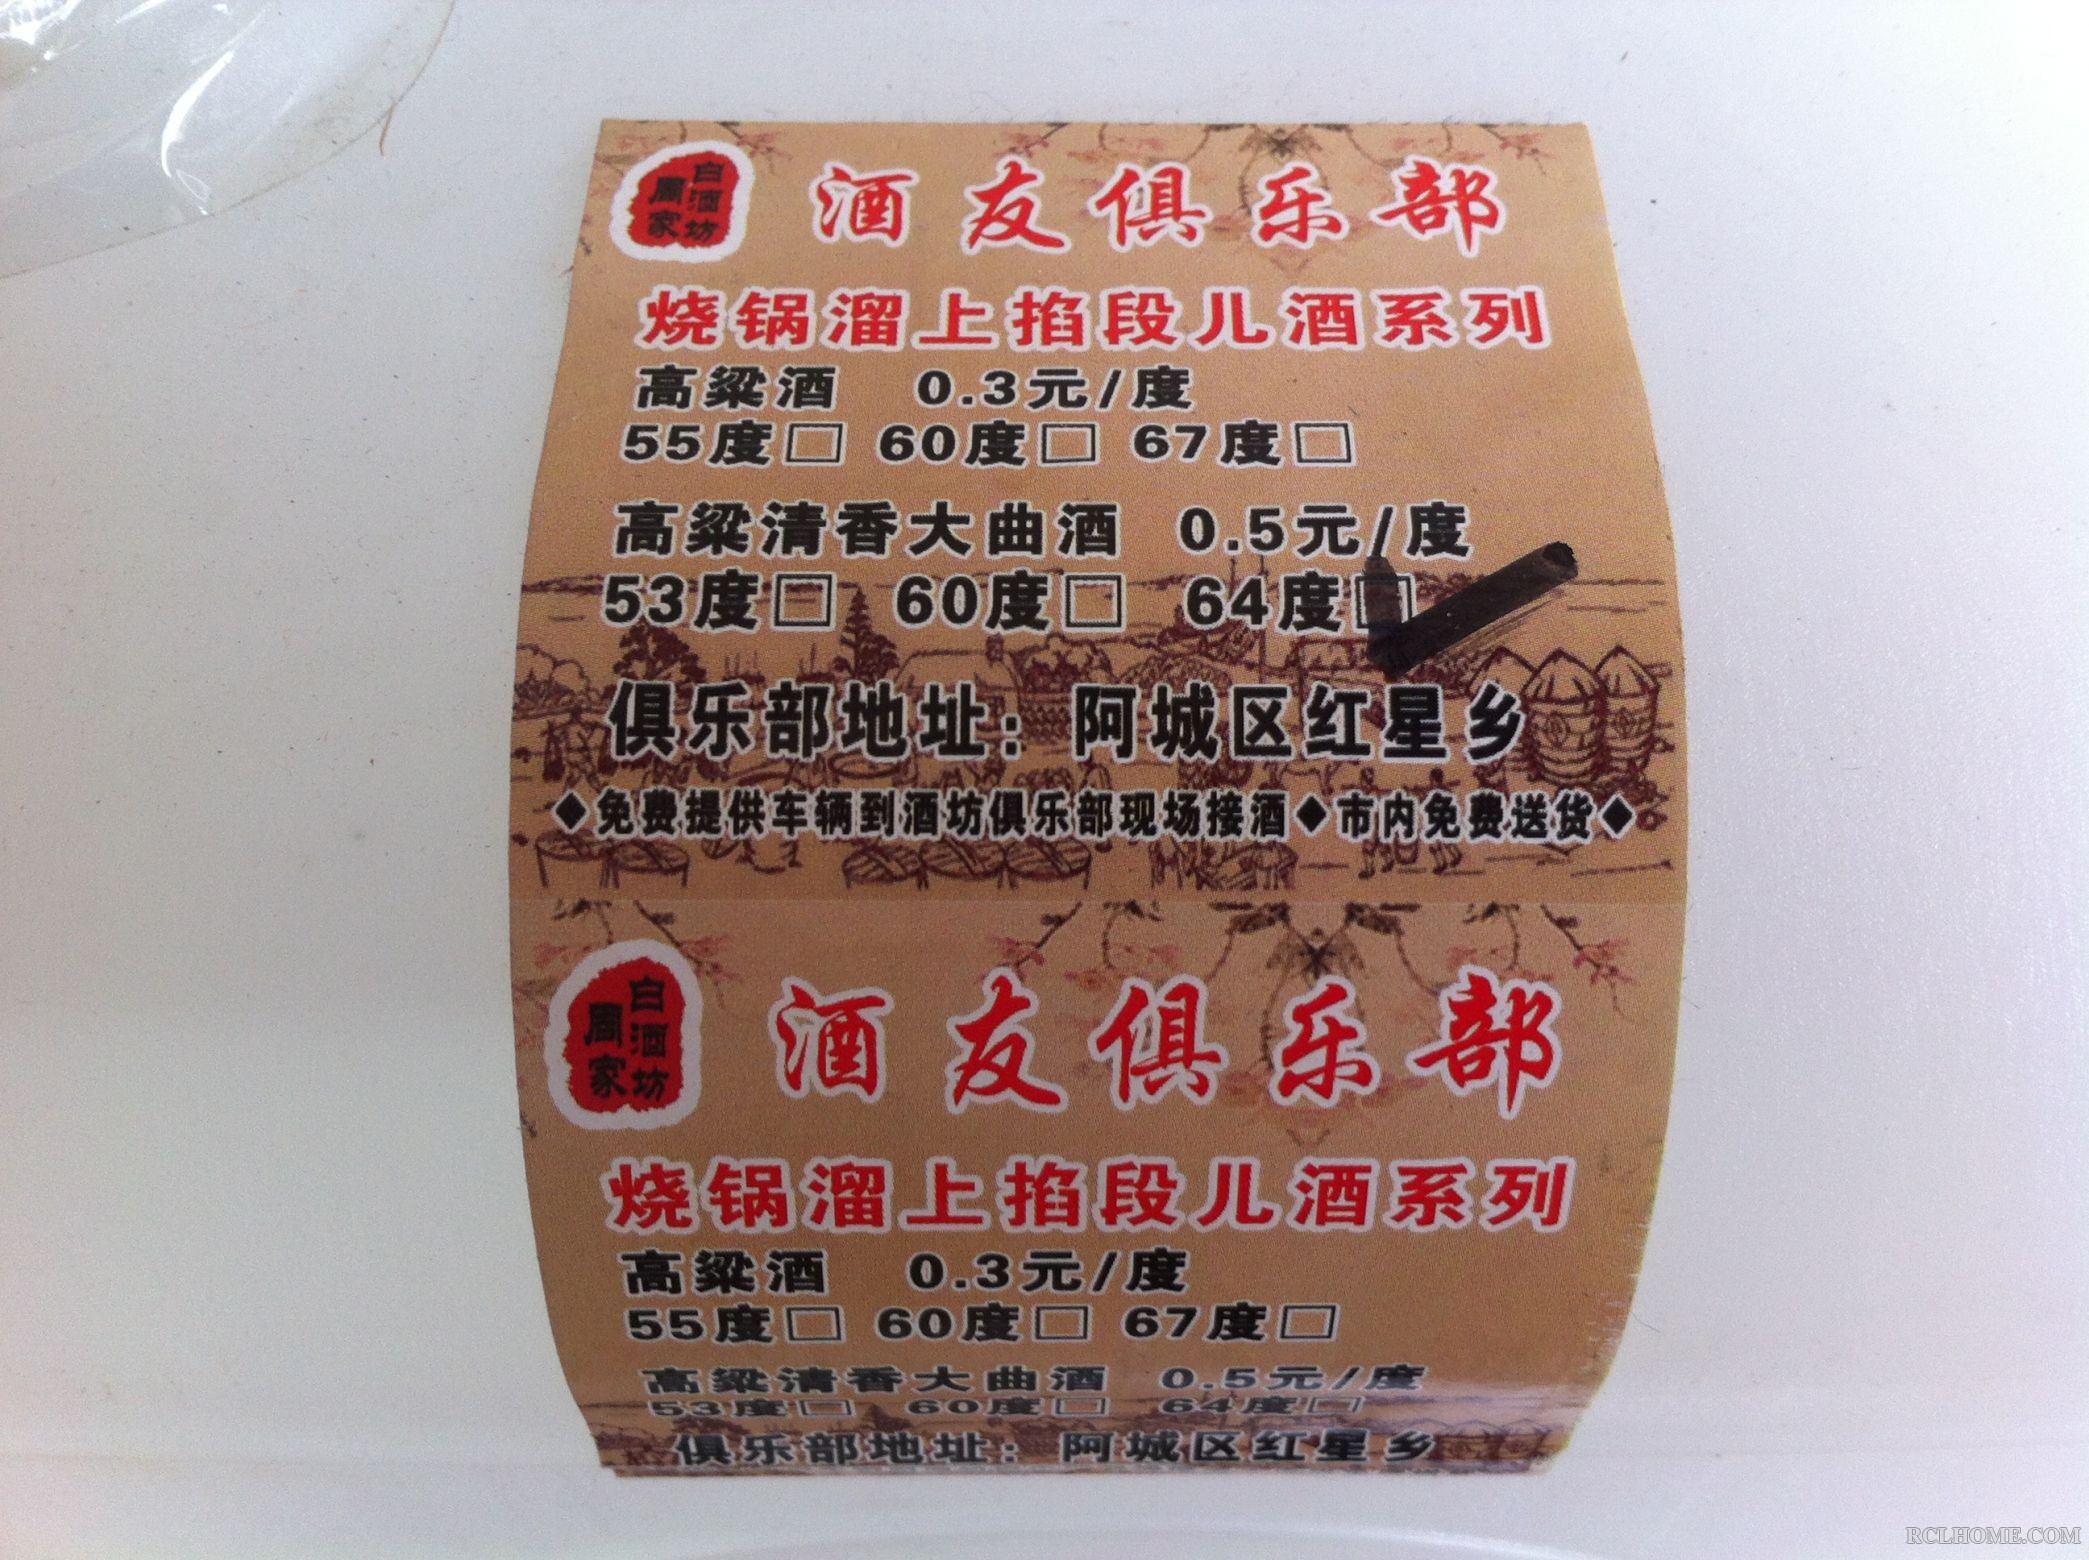 周家
白酒坊
酒友俱乐部
烧锅溜上掐段儿酒系列
高粱酒 0.3元/度
55度□ 60度□ 67度□
高粱清香大曲酒 0.5元/度
53度□ 60度□ 64度□
俱乐部地址：阿城区红星乡
◆免费提供车辆到酒坊俱乐部现场接酒◆市内免费送货◆
周家
白酒坊
酒友俱乐部
烧锅溜上掐段儿酒系列
高粱酒 0.3元/度
55度□ 60度□ 67度□
高粱清香大曲酒 0.5元/度
53度□ 60度□ 64度□
俱乐部地址：阿城区红星乡
RCLHOME.COM